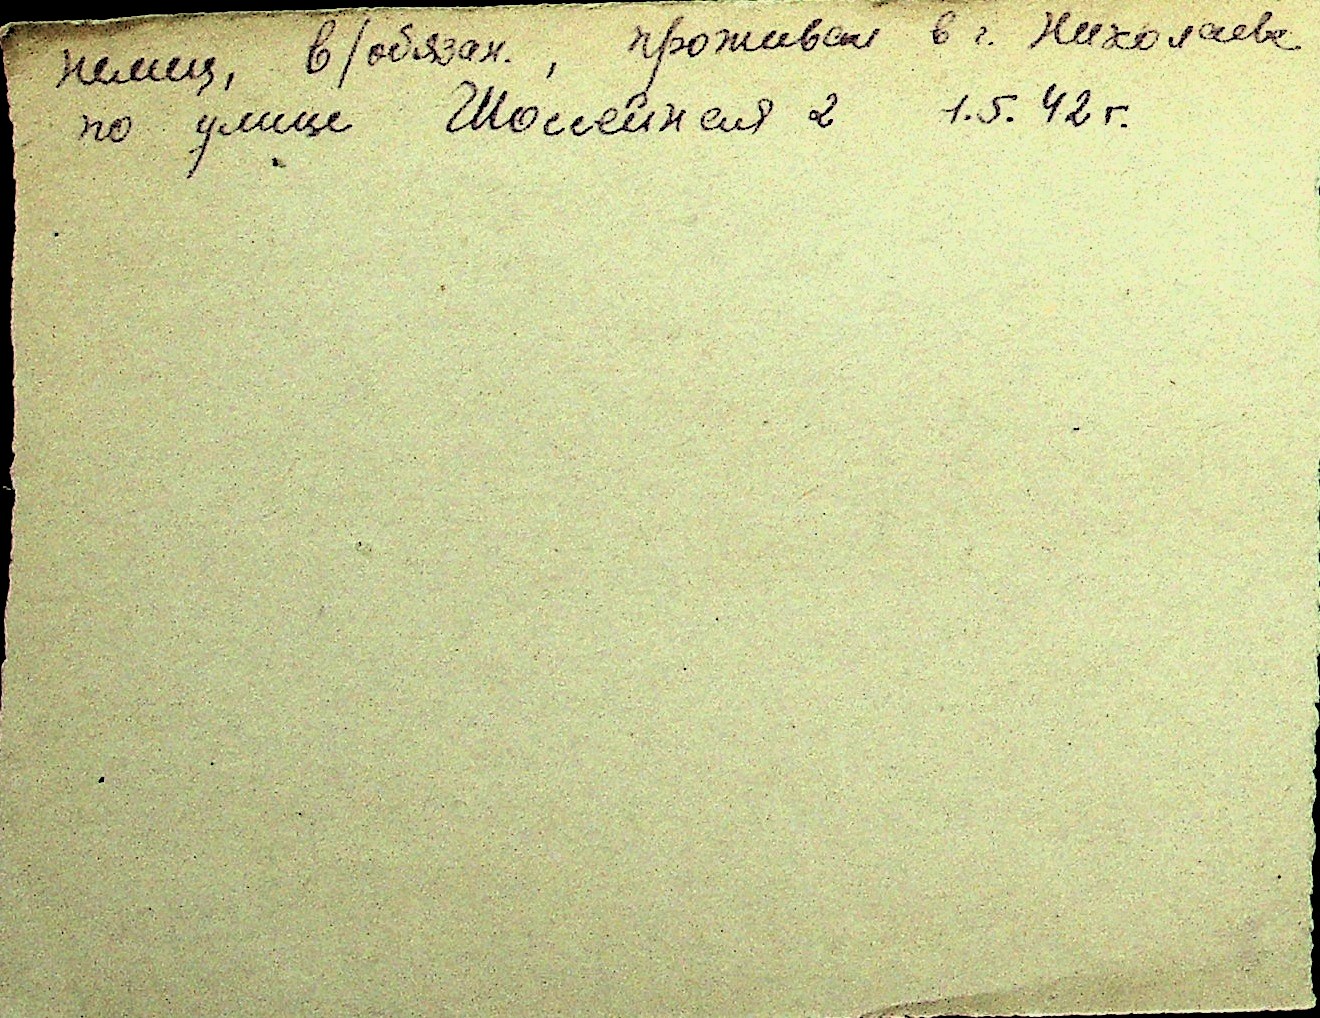 немец, в/обязан., проживал в г. Николаеве
по улице Шоссейная 2 1.5.42 г.